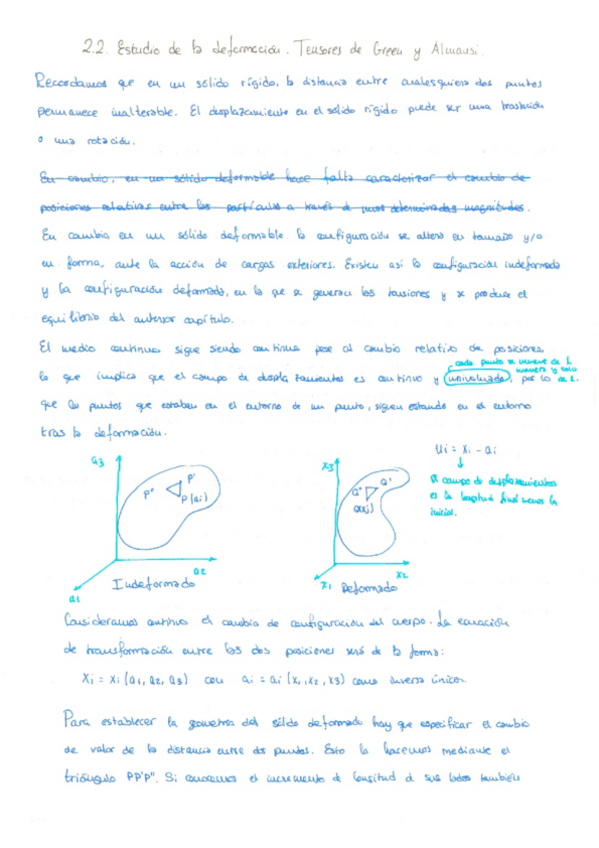 2.2. Estudio de la deformación. Tensores de Green y Almansi.
Recordamos que en un sólido rígido, la distancia entre cualesquiera dos puntos
permanece inalterable. El desplazamiento en el sólido rígido puede ser una traslación
o una rotación.
En cambio, en un sólido deformable hace falta caracterizar el cambio de
posiciones relativas entre las partículas a través de unas determinadas magnitudes.
En cambio en un sólido deformable la configuración se altera en tamaño y/o
en forma, ante la acción de cargas exteriores. Existen así la configuración indeformada
y la configuración deformada, en la que se generan las tensiones y se produce el
equilibrio del anterior capítulo.
El medio continuo sigue siendo continuo pese al cambio relativo de posiciones
cada punto se mueve de 1
manera y solo
lo que implica que el campo de desplazamientos es continuo y univaluado, por lo de 1.
que los puntos que estaban en el entorno de un punto, siguen estando en el entorno
tras la deformación.
ui = xi - ai
El campo de desplazamientos
es la longitud final menos la
inicial.
a3
P'
P''
P(ai)
a2
a1
Indeformado
x3
Q'
Q''
Q(xi)
x2
x1
Deformado
Consideramos continuo el cambio de configuración del cuerpo. La ecuación
de transformación entre las dos posiciones será de la forma:
xi = xi (a1, a2, a3) con ai = ai (x1, x2, x3) como inversa única.
Para establecer la geometría del sólido deformado hay que especificar el cambio
de valor de la distancia entre dos puntos. Esto lo hacemos mediante el
triángulo PP'P''. Si conocemos el incremento de longitud de sus lados también